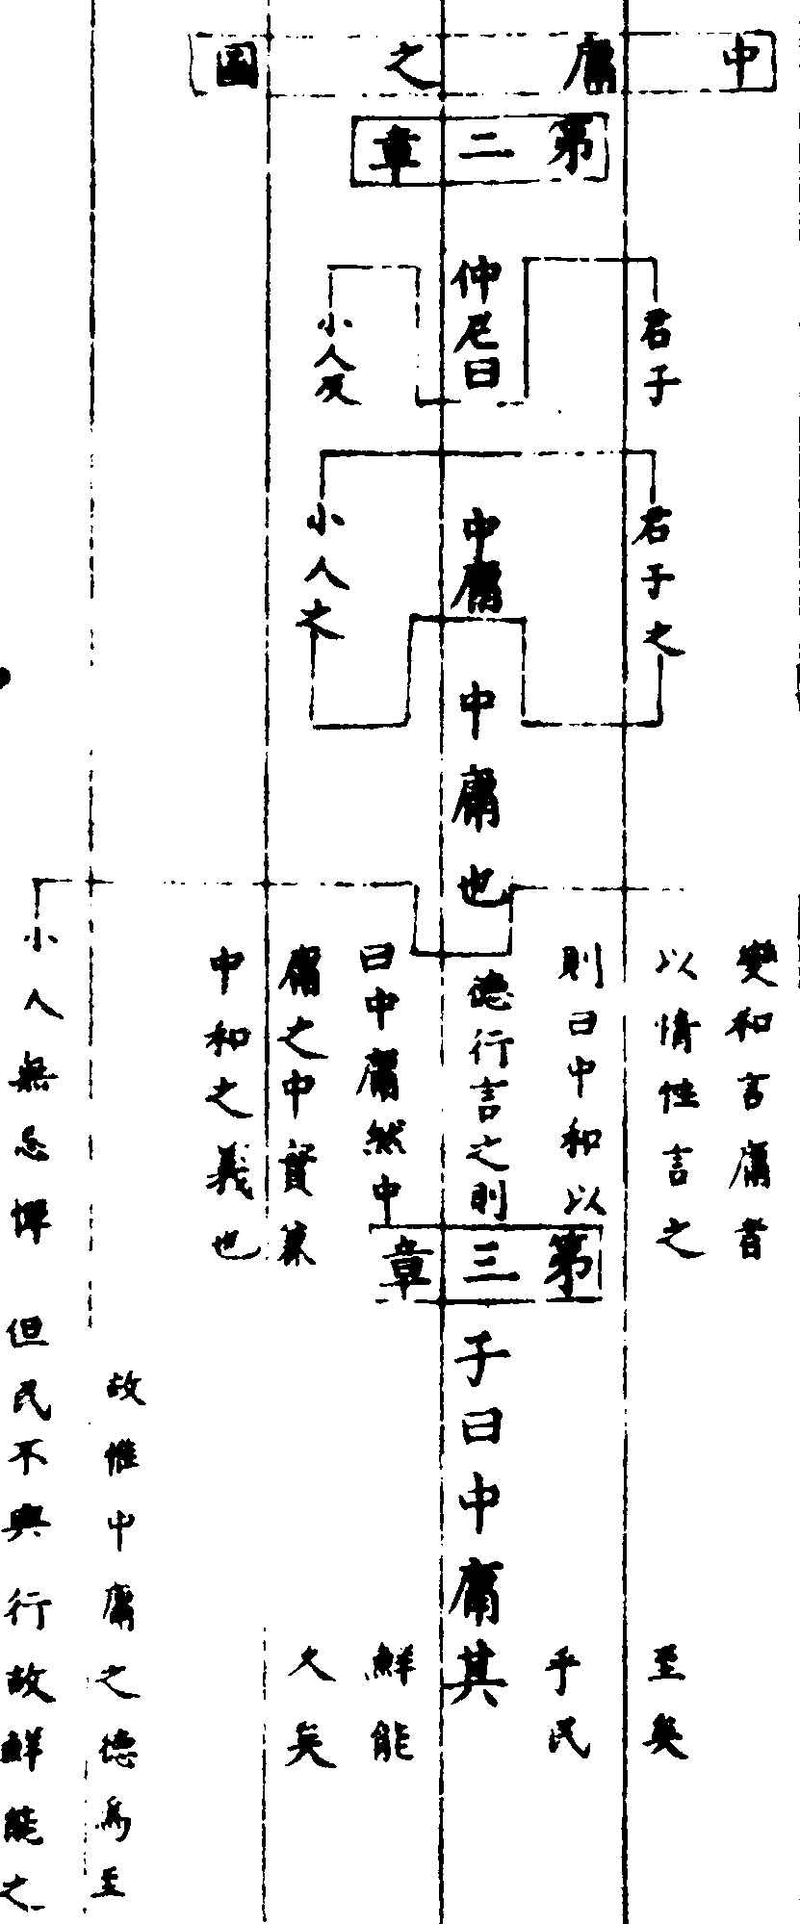 中庸之圖
第二章
仲尼曰
君子
小人反
中庸
君子之
小人之
中庸也
變和言庸者
以情性言之
則曰中和以
德行言之則
曰中庸然中
庸之中實兼
中和之義也
小人無忌憚
第三章
子曰中庸其
至矣
乎民
鮮能
久矣
故惟中庸之德爲至
但民不興行故鮮能之